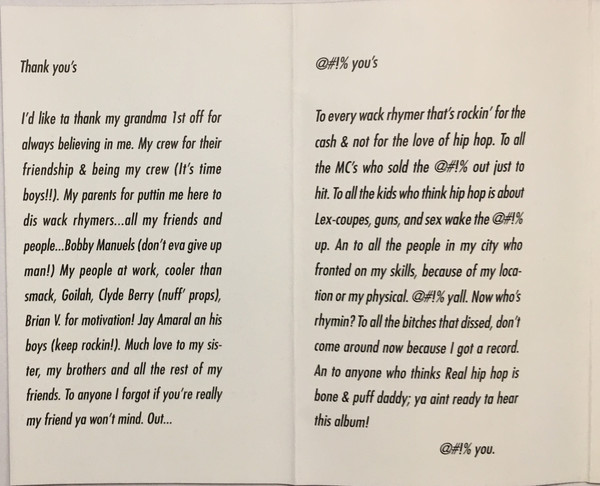 Thank you's
I'd like ta thank my grandma 1st off for
always believing in me. My crew for their
friendship & being my crew (It's time
boys!!). My parents for puttin me here to
dis wack rhymers...all my friends and
people...Bobby Manuels (don't eva give up
man!) My people at work, cooler than
smack, Goilah, Clyde Berry (nuff' props),
Brian V. for motivation! Jay Amaral an his
boys (keep rockin!). Much love to my sis-
ter, my brothers and all the rest of my
friends. To anyone I forgot if you're really
my friend ya won't mind. Out...
@#!% you's
To every wack rhymer that's rockin' for the
cash & not for the love of hip hop. To all
the MC's who sold the @#!% out just to
hit. To all the kids who think hip hop is about
Lex-coupes, guns, and sex wake the @#!%
up. An to all the people in my city who
fronted on my skills, because of my loca-
tion or my physical. @#!% yall. Now who's
rhymin? To all the bitches that dissed, don't
come around now because I got a record.
An to anyone who thinks Real hip hop is
bone & puff daddy; ya aint ready ta hear
this album!
@#!% you.